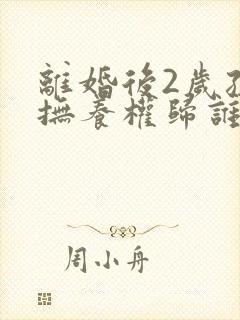 離婚後2歲孩
撫養權歸誰
周小舟